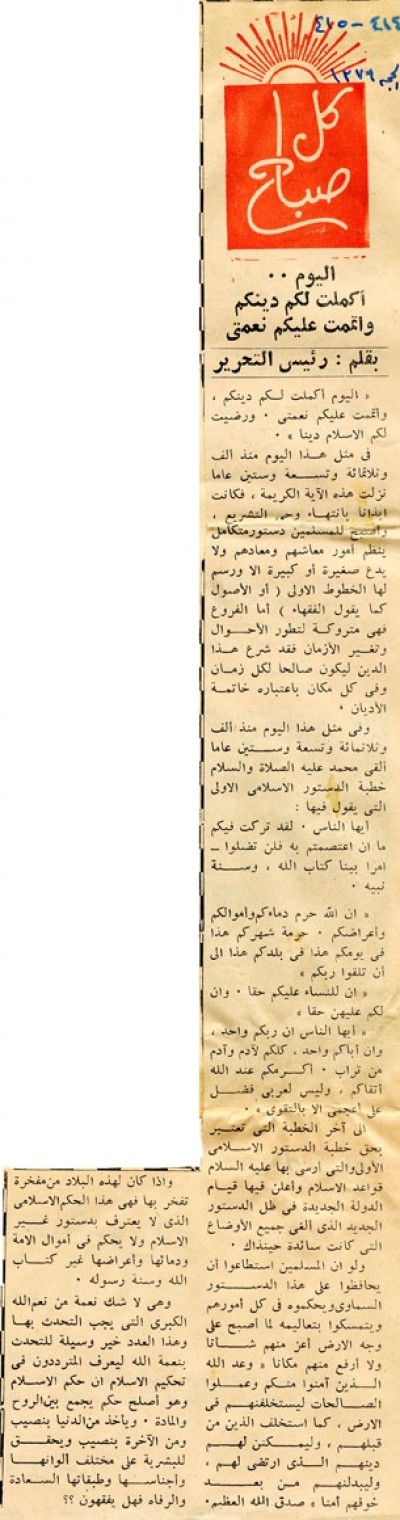 ٤١٤-٤١٥
١٣٧٩
كل صباح
اليوم ..
أكملت لكم دينكم
وأتممت عليكم نعمتى
بقلم : رئيس التحرير
« اليوم أكملت لكم دينكم ،
وأتممت عليكم نعمتى . ورضيت
لكم الاسلام دينا » .
فى مثل هذا اليوم منذ ألف
وثلاثمائة وتسعة وستين عاما
نزلت هذه الآية الكريمة ، فكانت
ايذانا بانتهاء وحى التشريع ،
وأصبح للمسلمين دستور متكامل
ينظم أمور معاشهم ومعادهم ولا
يدع صغيرة أو كبيرة الا ورسم
لها الخطوط الاولى ( أو الأصول
كما يقول الفقهاء ) أما الفروع
فهى متروكة لتطور الأحوال
وتغير الأزمان فقد شرع هذا
الدين ليكون صالحا لكل زمان
وفى كل مكان باعتباره خاتمة
الأديان .
وفى مثل هذا اليوم منذ ألف
وثلاثمائة وتسعة وستين عاما
ألقى محمد عليه الصلاة والسلام
خطبة الدستور الاسلامى الاولى
التى يقول فيها :
أيها الناس . لقد تركت فيكم
ما ان اعتصمتم به فلن تضلوا ـ
امرا بينا كتاب الله ، وسنة
نبيه .
« ان الله حرم دماءكم وأموالكم
وأعراضكم . حرمة شهركم هذا
فى يومكم هذا فى بلدكم هذا الى
أن تلقوا ربكم »
« ان للنساء عليكم حقا . وان
لكم عليهن حقا »
« أيها الناس ان ربكم واحد ،
وان أباكم واحد ، كلكم لآدم وآدم
من تراب . أكرمكم عند الله
أتقاكم ، وليس لعربى فضل
على أعجمى الا بالتقوى » .
الى آخر الخطبة التى تعتبر
بحق خطبة الدستور الاسلامى
الأولى والتى ارسى بها عليه السلام
قواعد الاسلام وأعلن فيها قيام
الدولة الجديدة فى ظل الدستور
الجديد الذى ألغى جميع الأوضاع
التى كانت سائدة حينذاك .
ولو ان المسلمين استطاعوا أن
يحافظوا على هذا الدستور
السماوى ويحكموه فى كل أمورهم
ويتمسكوا بتعاليمه لما أصبح على
وجه الارض أعز منهم شأنا
ولا أرفع منهم مكانا « وعد الله
الذين آمنوا منكم وعملوا
الصالحات ليستخلفنهم فى
الارض ، كما استخلف الذين من
قبلهم ، وليمكنن لهم
دينهم الذى ارتضى لهم ،
وليبدلنهم من بعد
خوفهم أمنا » صدق الله العظيم .
واذا كان لهذه البلاد من مفخرة
تفخر بها فهى هذا الحكم الاسلامى
الذى لا يعترف بدستور غير
الاسلام ولا يحكم فى أموال الامة
ودمائها وأعراضها غير كتاب
الله وسنة رسوله .
وهى لا شك نعمة من نعم الله
الكبرى التى يجب التحدث بها
وهذا العدد خير وسيلة للتحدث
بنعمة الله ليعرف المترددون فى
تحكيم الاسلام ان حكم الاسلام
وهو أصلح حكم يجمع بين الروح
والمادة . ويأخذ من الدنيا بنصيب
ومن الآخرة بنصيب ويحقق
للبشرية على مختلف ألوانها
وأجناسها وطبقاتها السعادة
والرفاه فهل يفقهون ؟؟